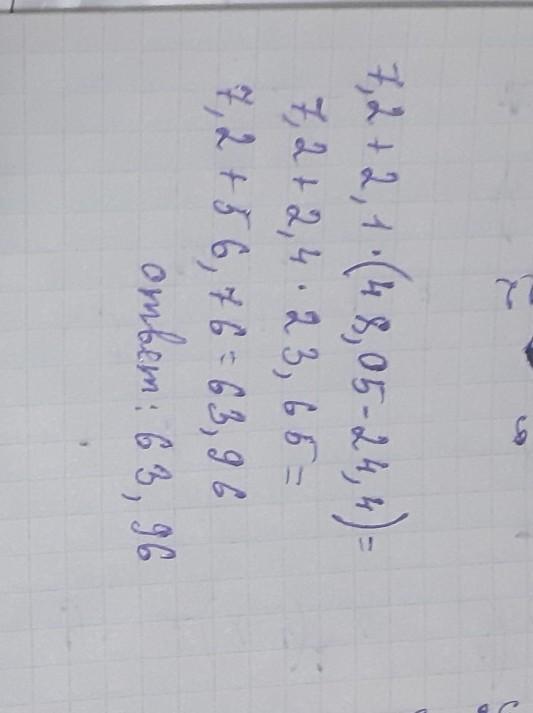 7,2 + 2,1 · (48,05 - 24,4) =
7,2 + 2,4 · 23,65 =
7,2 + 56,76 = 63,96
ответ: 63,96